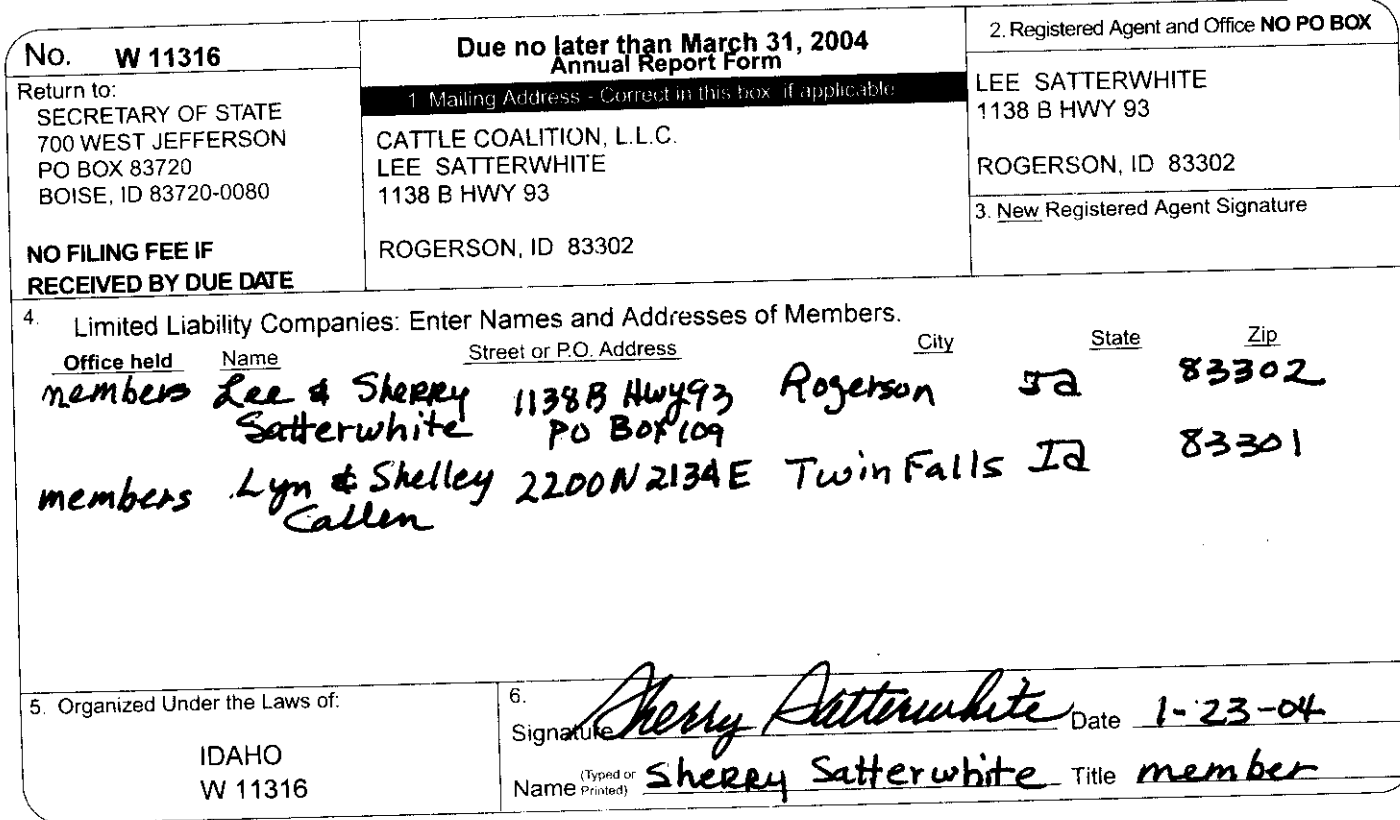 No. W 11316
Return to:
SECRETARY OF STATE
700 WEST JEFFERSON
PO BOX 83720
BOISE, ID 83720-0080
NO FILING FEE IF
RECEIVED BY DUE DATE
Due no later than March 31, 2004
Annual Report Form
1. Mailing Address - Correct in this box, if applicable
CATTLE COALITION, L.L.C.
LEE SATTERWHITE
1138 B HWY 93
ROGERSON, ID 83302
2. Registered Agent and Office NO PO BOX
LEE SATTERWHITE
1138 B HWY 93
ROGERSON, ID 83302
3. New Registered Agent Signature
4. Limited Liability Companies: Enter Names and Addresses of Members.
Office held Name Street or P.O. Address City State Zip
members Lee & Sherry 1138B Hwy93 Rogerson Id 83302
Satterwhite PO Box 109
members Lyn & Shelley 2200N 2134E Twin Falls Id 83301
Callen
5. Organized Under the Laws of:
IDAHO
W 11316
6.
Signature Sherry Satterwhite Date 1-23-04
Name (Typed or Printed) Sherry Satterwhite Title member